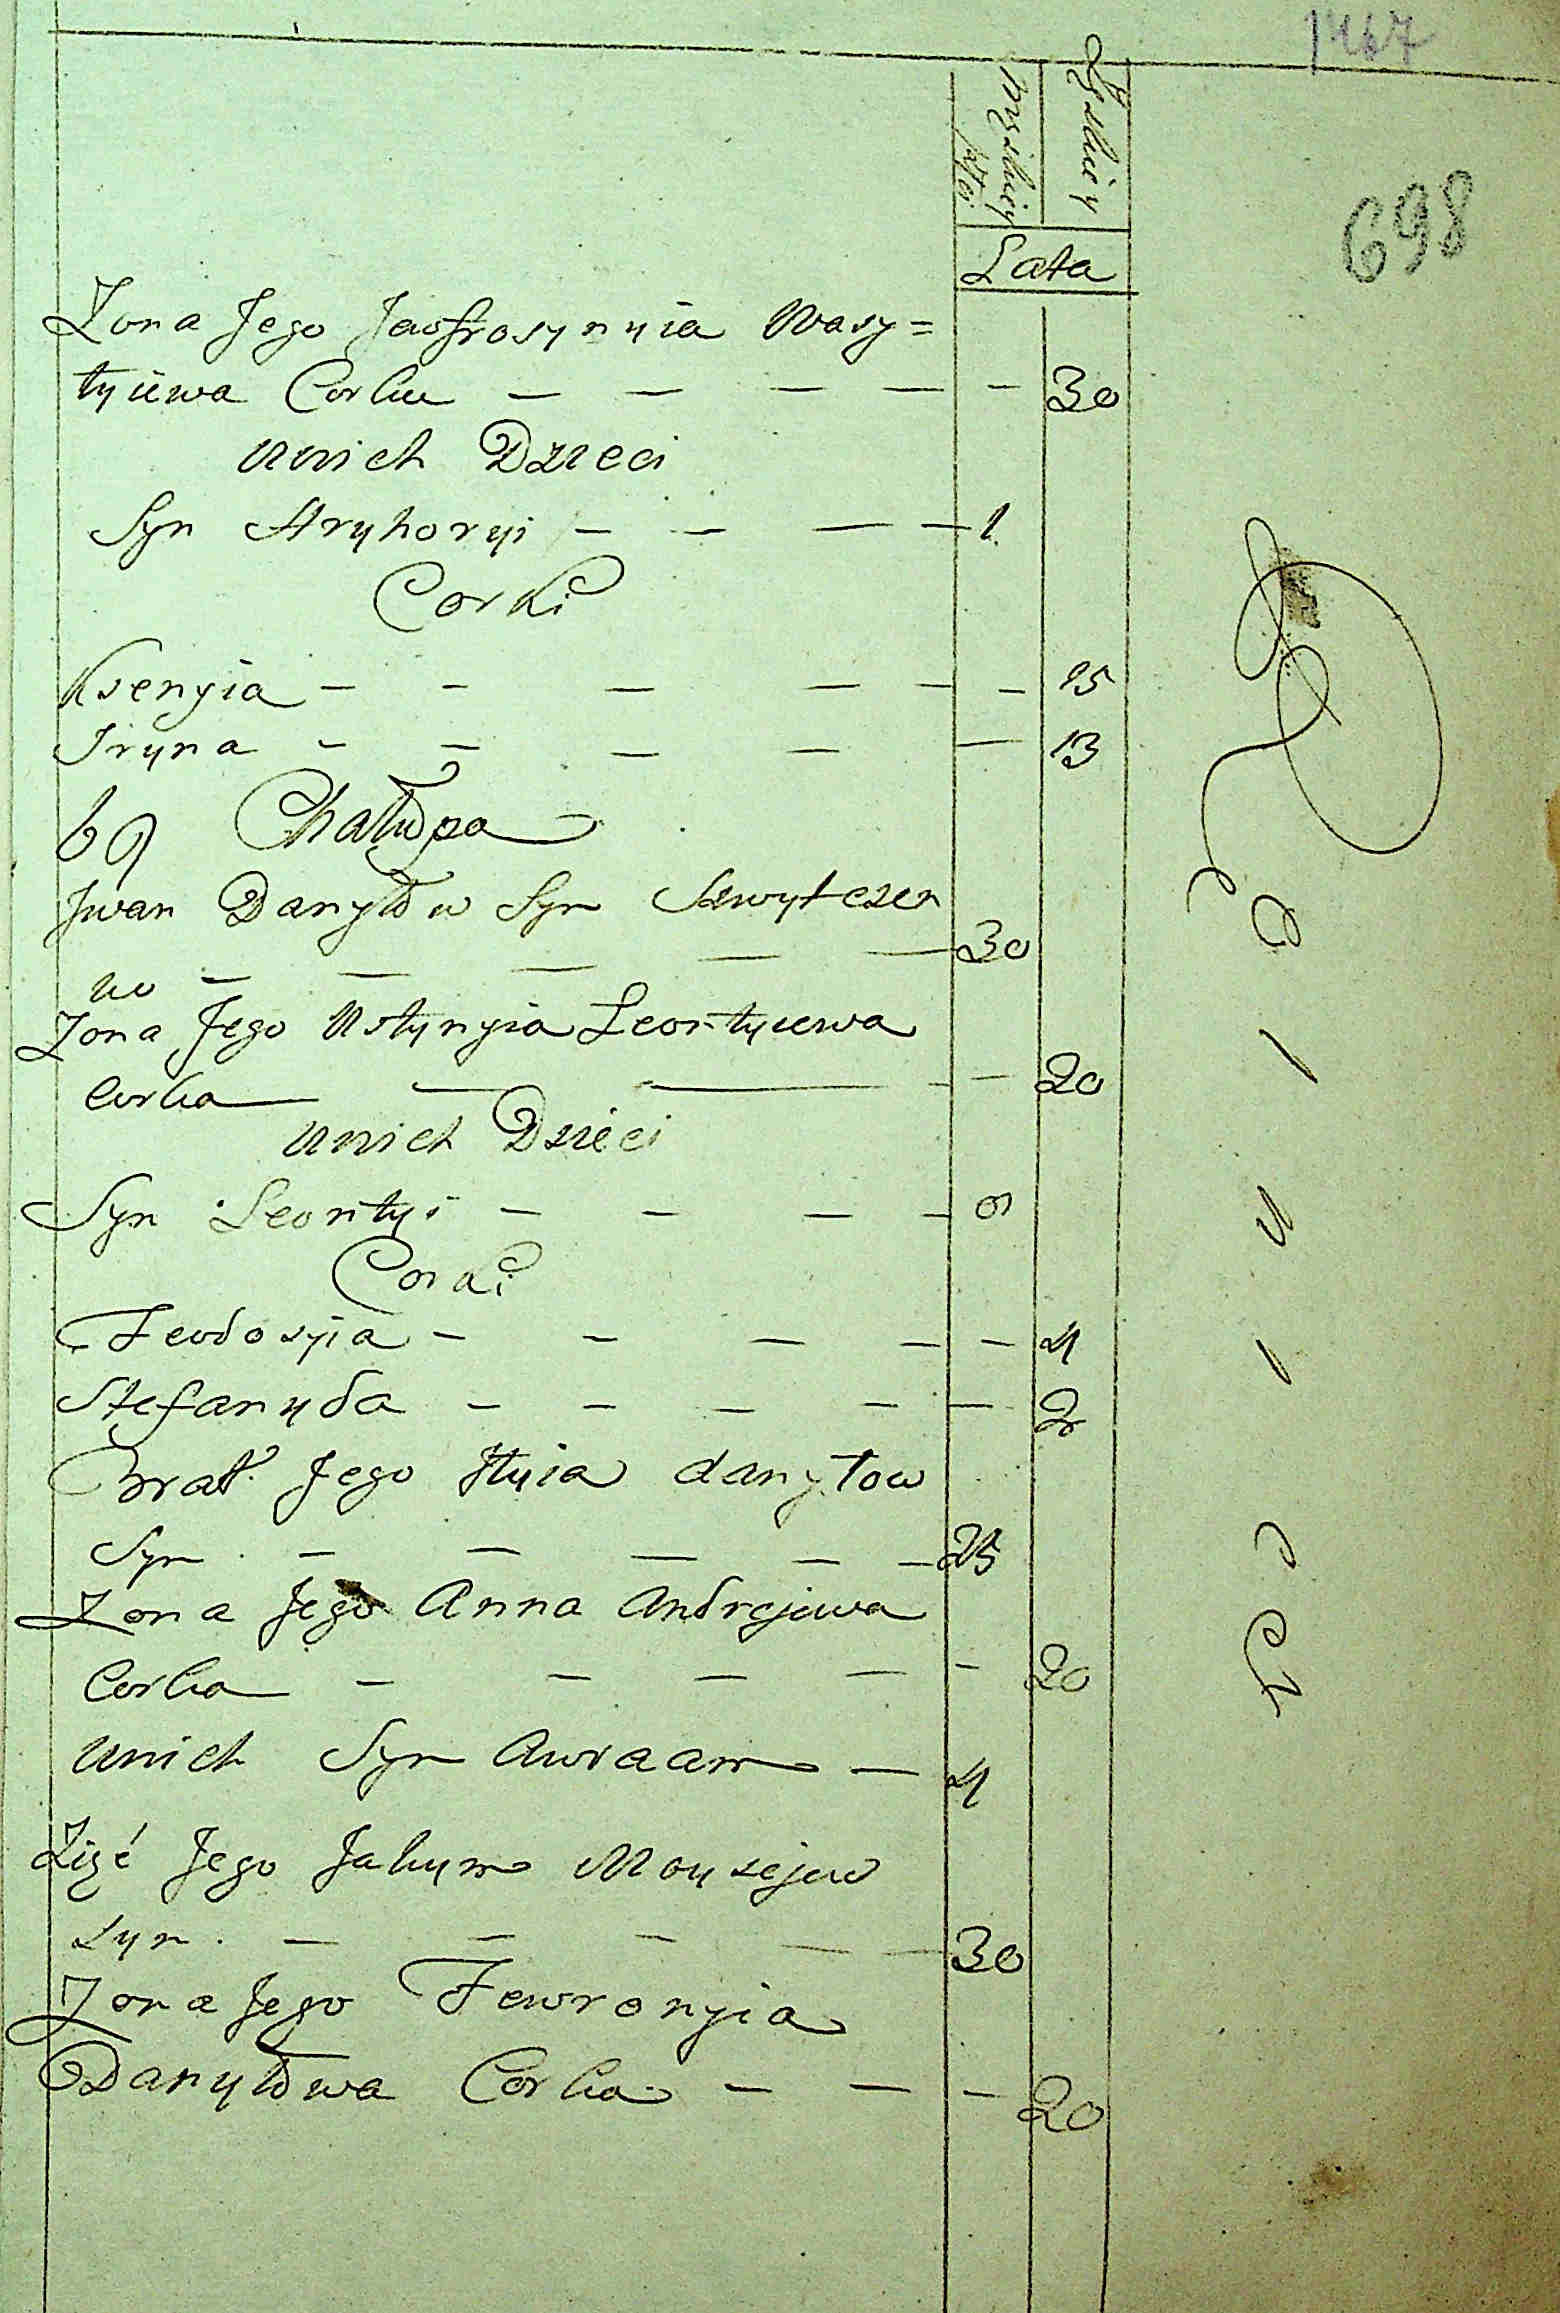 1467
698
Męzkiey płci
Żeńskiey
Lata
Żona Jego Jewfrosynyia Wasy=
łyiewa Corka — — — — — 30
Unich Dzieci
Syn Hryhoryi — — — — 1
Corki
Ksenyia — — — — — — 15
Iryna — — — — — 13
69 Chałupa
Jwan Danyłow Syn Szwytczen
ko — — — — — 30
Żona Jego Ustynyia Leontyiewa
Corka — — — — 20
Unich Dzieci
Syn Leontyi — — — — 9
Corki
Feodosyia — — — — — 4
Stefanyda — — — — — 2
Brat Jego Illyia danyłow
Syn — — — — — 25
Żona Jego Anna Andrejewa
Corka — — — — — 20
Unich Syn Awraam — 4
Zięć Jego Jakym Moysejew
syn — — — — — 30
Żona Jego Fewronyia
Danyłowa Corka — — — 20